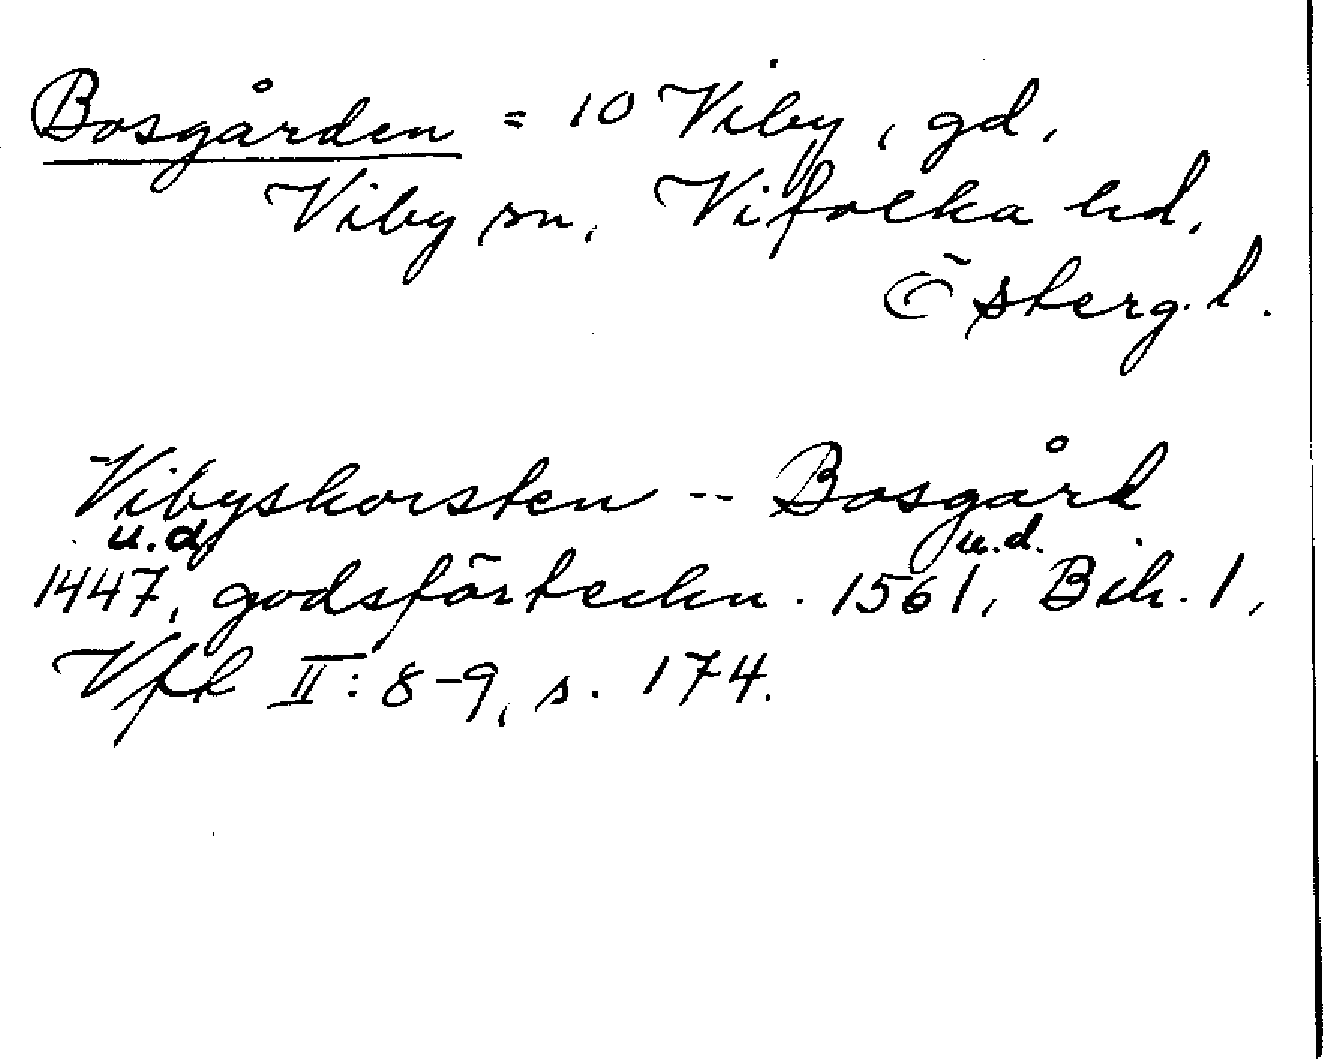 Bosgården = 10 Viby, gd,
Viby sn, Vifolka hd,
Österg. l.
Vibyskorsten -- Bosgård
u.d. u.d.
1447, godsförteckn. 1561, Bih. 1,
Vfk II: 8-9, s. 174.